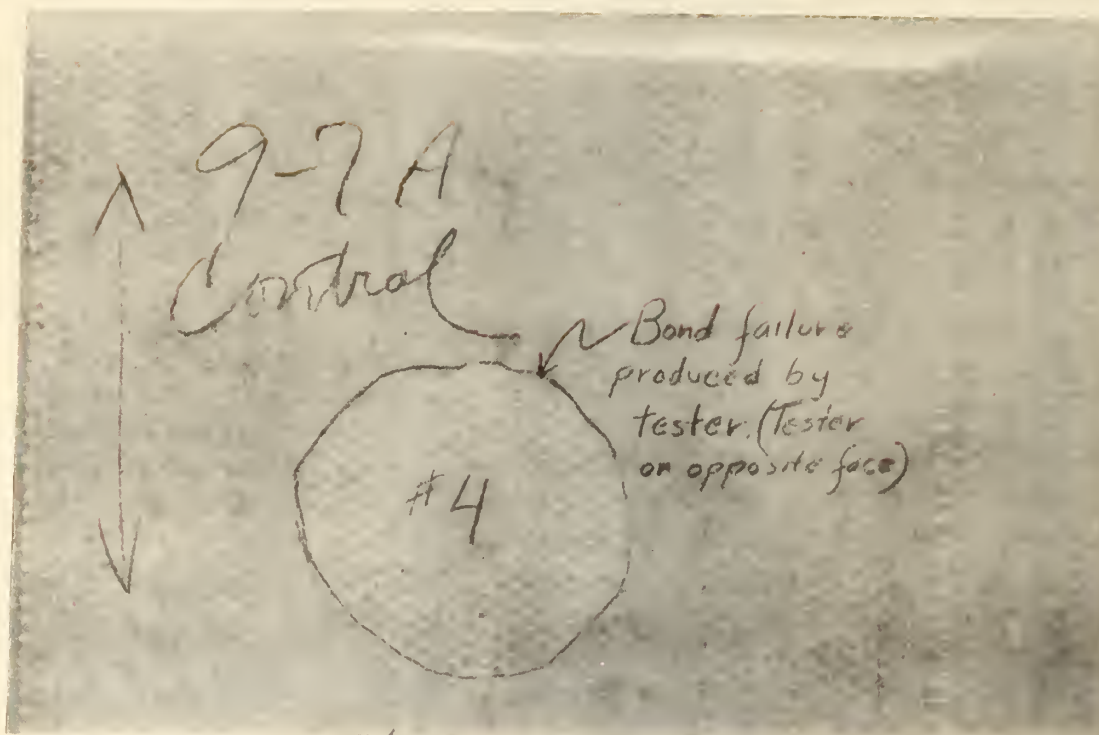 9-7 A
Control
Bond failure
produced by
tester. (Tester
on opposite face)
#4